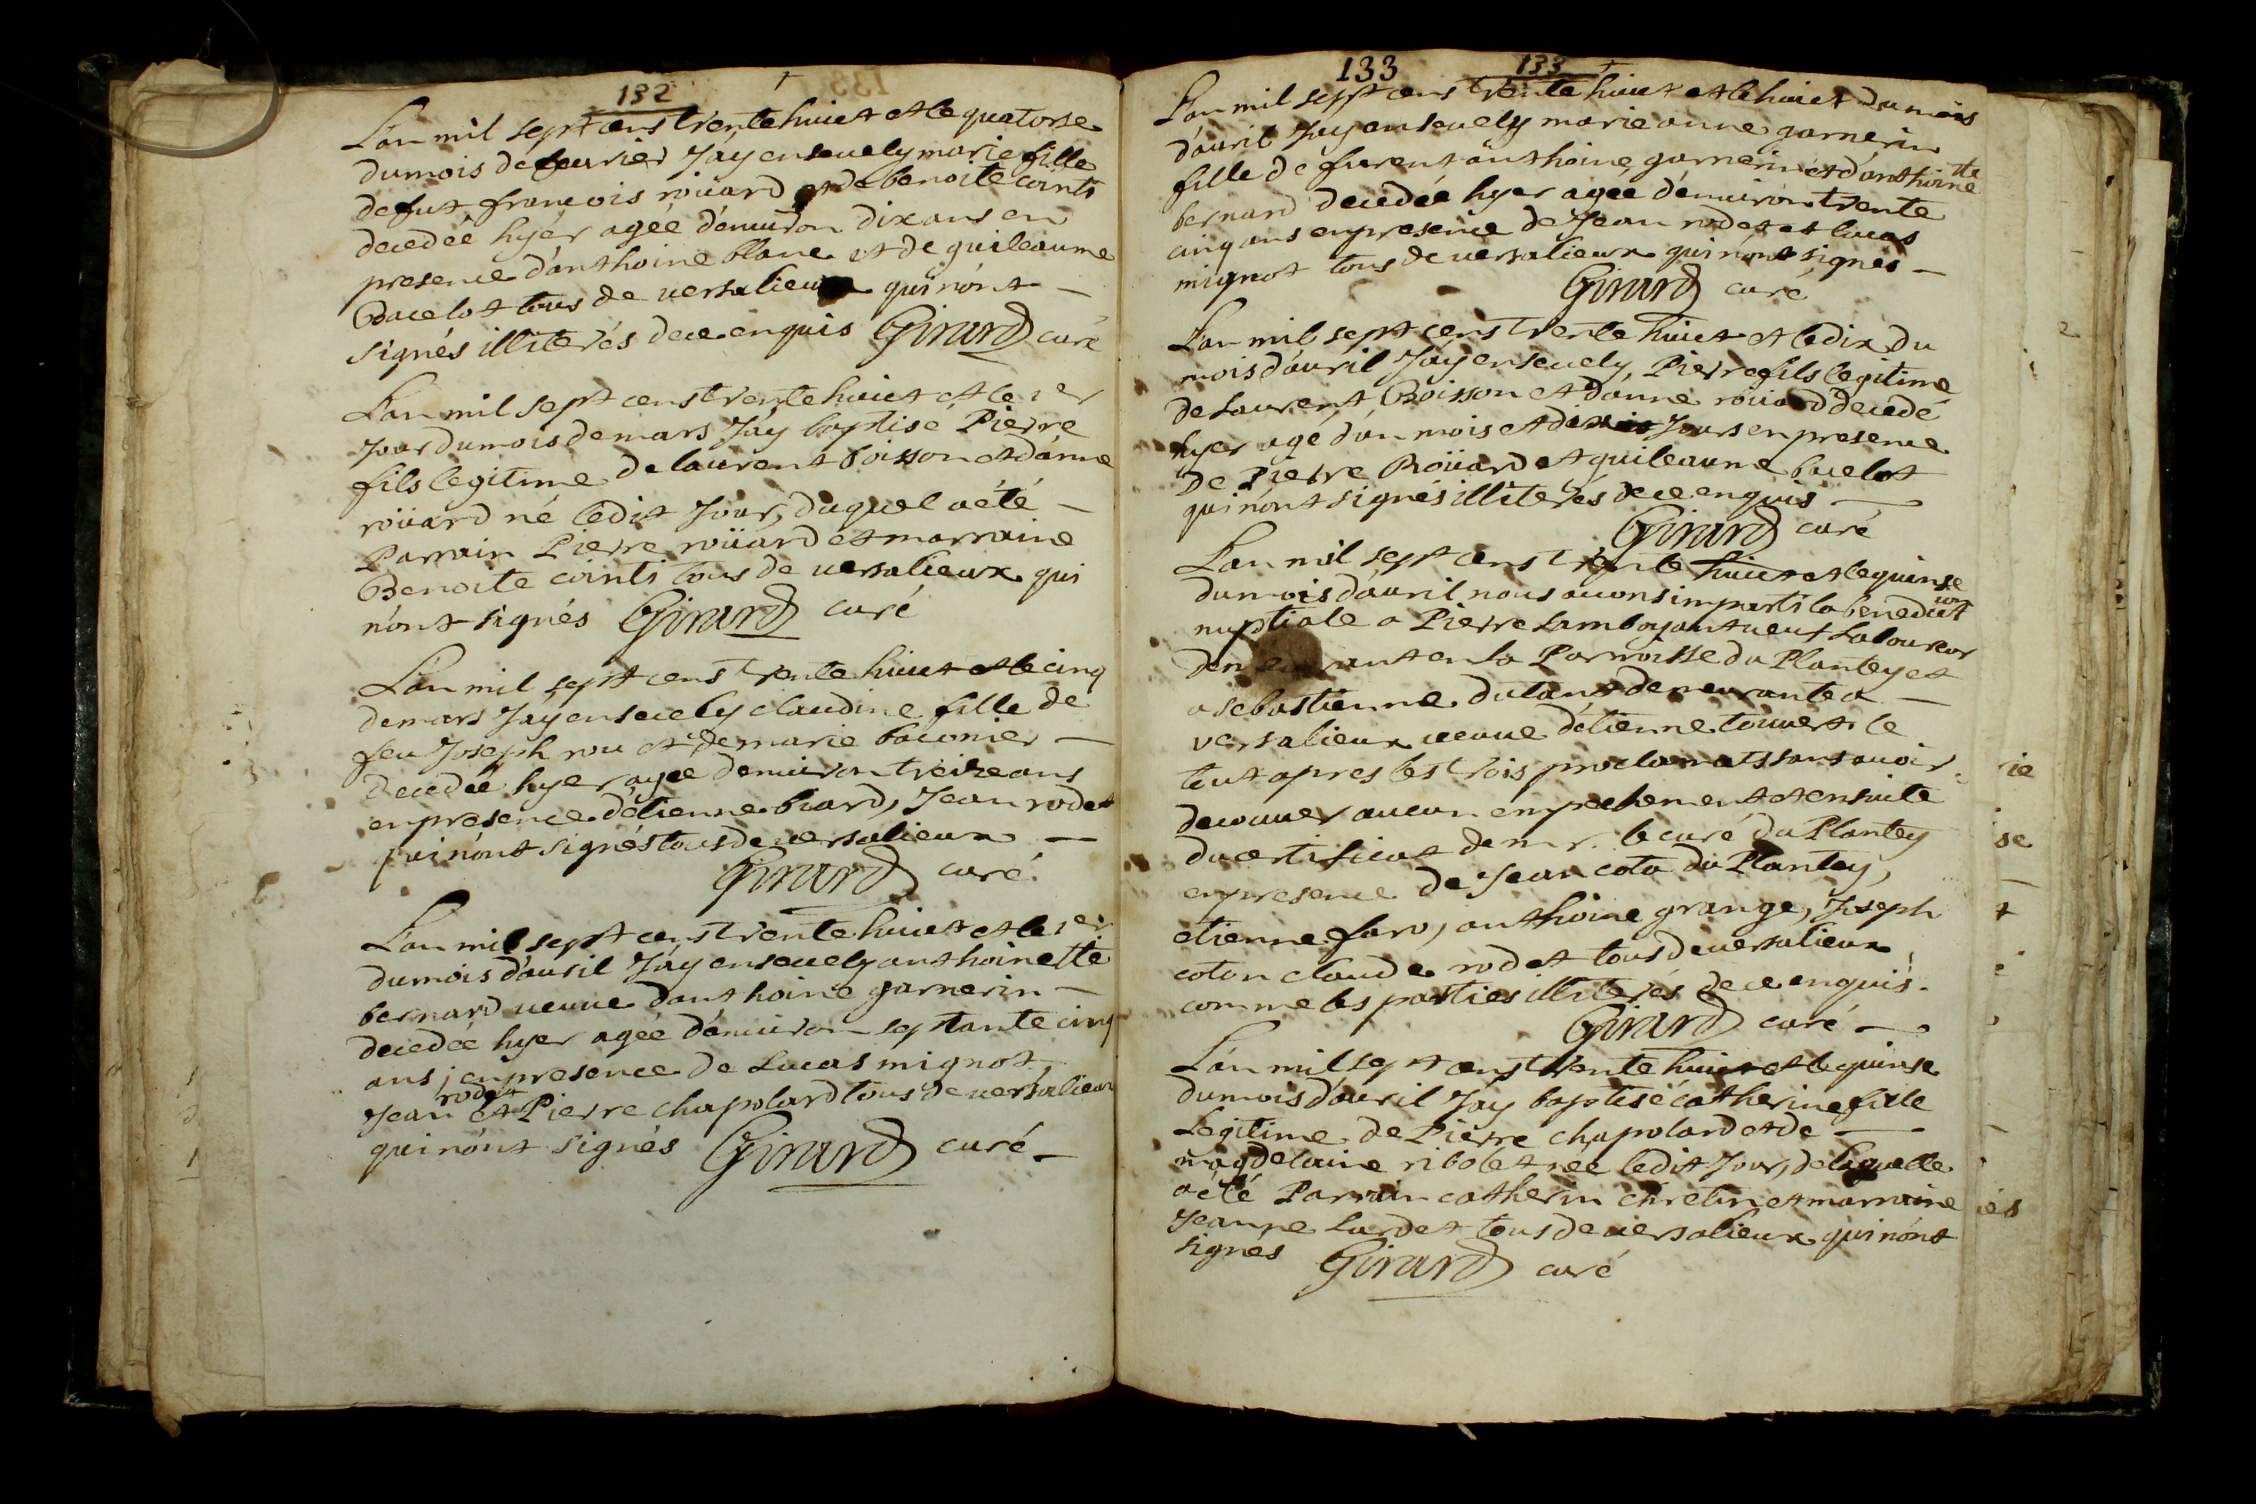 132
L'an mil sept cens trente huict et le quatorse
du mois de feurier J'ay enseuely marie fille
de fut francois roüard et de benoite cointi
decedeé hyér agée d'enuiron dix ans en
presence d'anthoine blanc et de guileaume
Bacelot tous de uersalieux qui n'ont
signés illiterés de ce enquis Girard curé
L'an mil sept cens trente huict et le 1er
Jour du mois de mars J'ay baptisé Pierre
fils legitime de laurent boisson et d'anne
roüard né ledit Jour, duquel a été
Parrain Pierre roüard et marraine
Benoite cointi tous de uersalieux qui
n'ont signés Girard curé
L'an mil sept cens trente huict et le cinq
de mars J'ay enseuely claudine fille de
feu Joseph rou et de marie baconier
decedeé hyer agee denuiron treize ans
en presence d'étienne biard, Jean rodet
qui n'ont signés tous de uersalieux
Girard curé.
L'an mil sept cens trente huict et le 1er
du mois d'auril J'ay enseuely anthoinette
bernard ueuue d'anthoine garnerin
decedéé hyer agée d'enuiron septante cinq
ans, en presence de Lucas mignot
rodet
Jean et Pierre chapolard tous de uersalieux
qui n'ont signés Girard curé
133 133
L'an mil sept cens trente huict et le huict du mois
d'auril J'ay enseuely marie anne garnerin
fille de furent anthoine garnerin et d'anthoinette
bernard decedeé hyer agee d'enuiron trente
cinq ans en presence de Jean rodet et lucas
mignot tous de uersalieux qui n'ont signés
Girard curé
L'an mil sept cens trente huict et le dix du
mois d'auril J'ay enseuely, Pierre fils legitime
de Laurent Boisson et danne roüard decedé
hyer agé d'un mois et Jours en presence
de Pierre Roüard et guileaume bacelot
qui n'ont signés illiterés de ce enquis
Girard curé
L'an mil sept cens trente huict et le quinse
du mois d'auril nous auons imparti la benediction
nuptiale a Pierre Lamboyant ueuf Laboureur
demeurant en la Parroisse du Plantey et
a sebastienne dutant demeurante a
versalieux ueuue d'étienne touuet le
tout apres les trois proclamats sans auoir
decouuer aucun empechement et ensuite
du certificat de mr. le curé du Plantey
en presence de Jean cota du Plantey,
etienne faro, anthoine grange, Joseph
coton claude rodet tous de uersalieux
comme les parties illiterés de ce enquis.
Girard curé
L'an mil sept cens trente huict et le quinse
du mois d'auril J'ay baptisé catherine fille
Legitime de Pierre chapolard et de
magdelaine ribolet née ledit Jour, de laquelle
a été Parrain catherin chretin et marraine
Jeanne Lardet tous de uersalieux qui n'ont
signés Girard curé